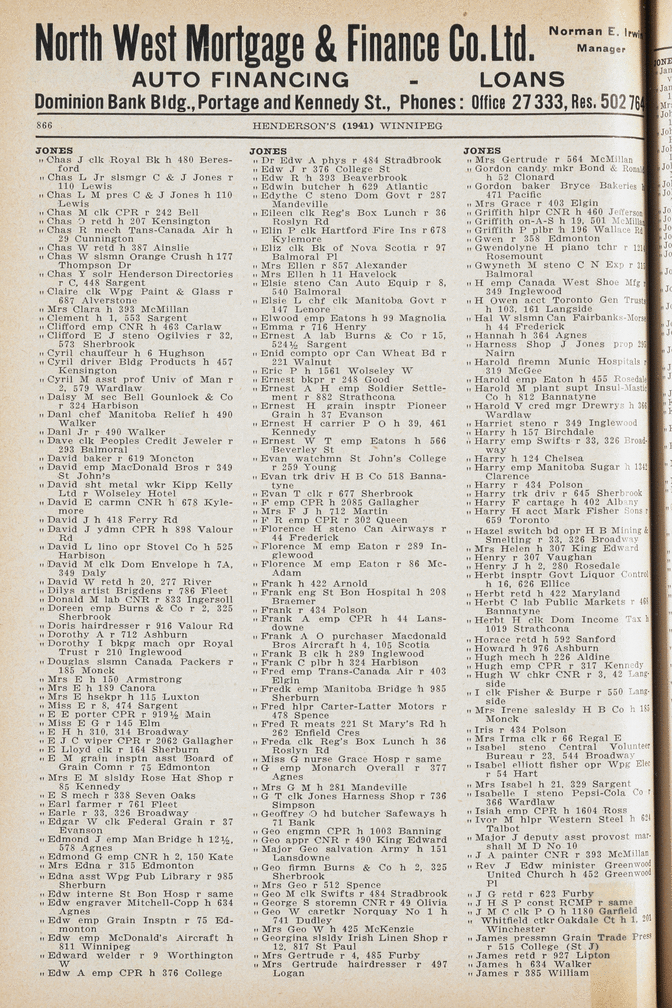 North West Mortgage & Finance Co. Ltd.
Norman E. Irwin
Manager
AUTO FINANCING - LOANS
Dominion Bank Bldg., Portage and Kennedy St., Phones: Office 27 333, Res. 502 764
866 HENDERSON'S (1941) WINNIPEG
JONES
" Chas J clk Royal Bk h 480 Beres-
ford
" Chas L Jr slsmgr C & J Jones r
110 Lewis
" Chas L M pres C & J Jones h 110
Lewis
" Chas M clk CPR r 242 Bell
" Chas O retd h 207 Kensington
" Chas R mech Tans-Canada Air h
29 Cunnington
" Chas W retd h 387 Ainslie
" Chas W slsmn Orange Crush h 177
Thompson Dr
" Chas Y solr Henderson Directories
r C, 448 Sargent
" Claire clk Wpg Paint & Glass r
687 Alverstone
" Mrs Clara h 393 McMillan
" Clement h 1, 553 Sargent
" Clifford emp CNR h 463 Carlaw
" Clifford E J steno Ogilvies r 32,
573 Sherbrook
" Cyril chauffeur h 6 Hughson
" Cyril driver Bldg Products h 457
Kensington
" Cyril M asst prof Univ of Man r
2, 579 Wardlaw
" Daisy M sec Bell Gounlock & Co
r 324 Harbison
" Danl chef Manitoba Relief h 490
Walker
" Danl Jr r 490 Walker
" Dave clk Peoples Credit Jeweler r
293 Balmoral
" David baker r 619 Moncton
" David emp MacDonald Bros r 349
St John's
" David sht metal wkr Kipp Kelly
Ltd r Wolseley Hotel
" David E carmn CNR h 678 Kyle-
more
" David J h 418 Ferry Rd
" David J ydmn CPR h 898 Valour
Rd
" David L lino opr Stovel Co h 525
Harbison
" David M clk Dom Envelope h 7A,
349 Daly
" David W retd h 20, 277 River
" Dilys artist Brigdens r 786 Fleet
" Donald M lab CNR r 833 Ingersoll
" Doreen emp Burns & Co r 2, 325
Sherbrook
" Doris hairdresser r 916 Valour Rd
" Dorothy A r 712 Ashburn
" Dorothy I bkpg mach opr Royal
Trust r 210 Inglewood
" Douglas slsmn Canada Packers r
185 Monck
" Mrs E h 150 Armstrong
" Mrs E h 189 Canora
" Mrs E hsekpr h 115 Luxton
" Miss E r 8, 474 Sargent
" E E porter CPR r 919½ Main
" Miss E G r 145 Elm
" E H h 310, 314 Broadway
" E J C wiper CPR r 2062 Gallagher
" E Lloyd clk r 164 Sherburn
" E M grain insptn asst Board of
Grain Comn r 75 Edmonton
" Mrs E M slsldy Rose Hat Shop r
85 Kennedy
" E S mech r 338 Seven Oaks
" Earl farmer r 761 Fleet
" Earle r 33, 326 Broadway
" Edgar W clk Federal Grain r 37
Evanson
" Edmond J emp Man Bridge h 12½,
578 Agnes
" Edmond G emp CNR h 2, 150 Kate
" Mrs Edna r 315 Edmonton
" Edna asst Wpg Pub Library r 985
Sherburn
" Edw interne St Bon Hosp r same
" Edw engraver Mitchell-Copp h 634
Agnes
" Edw emp Grain Insptn r 75 Ed-
monton
" Edw emp McDonald's Aircraft h
811 Winnipeg
" Edward welder r 9 Worthington
W
" Edw A emp CPR h 376 College
JONES
" Dr Edw A phys r 484 Stradbrook
" Edw J r 376 College St
" Edw R h 393 Beaverbrook
" Edwin butcher h 629 Atlantic
" Edythe C steno Dom Govt r 287
Mandeville
" Eileen clk Reg's Box Lunch r 36
Roslyn Rd
" Elin P clk Hartford Fire Ins r 678
Kylemore
" Eliz clk Bk of Nova Scotia r 97
Balmoral Pl
" Mrs Ellen r 857 Alexander
" Mrs Ellen h 11 Havelock
" Elsie steno Can Auto Equip r 8,
540 Balmoral
" Elsie L chf clk Manitoba Govt r
147 Lenore
" Ellwood emp Eatons h 99 Magnolia
" Emma r 716 Henry
" Ernest A lab Burns & Co r 15,
524½ Sargent
" Enid compto opr Can Wheat Bd r
221 Walnut
" Eric P h 1561 Wolseley W
" Ernest bkpr r 248 Good
" Ernest A H emp Soldier Settle-
ment r 882 Strathcona
" Ernest H grain insptr Pioneer
Grain h 37 Evanson
" Ernest H carrier P O h 39, 461
Kennedy
" Ernest W T emp Eatons h 566
Beverley St
" Evan watchmn St John's College
r 259 Young
" Evan trk driv H B Co 518 Banna-
tyne
" Evan T clk r 677 Sherbrook
" F emp CPR h 2085 Gallagher
" Mrs F J h 712 Martin
" F R emp CPR r 302 Queen
" Florence H steno Can Airways r
44 Frederick
" Florence M emp Eaton r 289 In-
glewood
" Florence M emp Eaton r 86 Mc-
Adam
" Frank h 422 Arnold
" Frank eng St Bon Hospital h 208
Braemer
" Frank r 434 Polson
" Frank A emp CPR h 44 Lans-
downe
" Frank A O purchaser Macdonald
Bros Aircraft h 4, 105 Scotia
" Frank B clk h 289 Inglewood
" Frank C plbr h 324 Harbison
" Fred emp Trans-Canada Air r 403
Elgin
" Fredk emp Manitoba Bridge h 985
Sherburn
" Fred hlpr Carter-Latter Motors r
478 Spence
" Fred R meats 221 St Mary's Rd h
262 Enfield Cres
" Freda clk Reg's Box Lunch h 36
Roslyn Rd
" Miss G nurse Grace Hosp r same
" G emp Monarch Overall r 377
Agnes
" Mrs G M h 281 Mandeville
" G T clk Jones Harness Shop r 736
Simpson
" Geoffrey O hd butcher Safeways h
71 Bank
" Geo engmn CPR h 1003 Banning
" Geo appr CNR r 490 King Edward
" Major Geo salvation Army h 151
Lansdowne
" Geo firmn Burns & Co h 2, 325
Sherbrook
" Mrs Geo r 512 Spence
" Geo M clk Swifts r 484 Stradbrook
" George S storemn CNR r 49 Olivia
" Geo W caretkr Norquay No 1 h
741 Dudley
" Mrs Geo W h 425 McKenzie
" Georgina slsldy Irish Linen Shop r
12, 817 St Paul
" Mrs Gertrude r 4, 485 Furby
" Mrs Gertrude hairdresser r 497
Logan
JONES
" Mrs Gertrude r 564 McMillan
" Gordon candy mkr Bond & Ronald
h 52 Clonard
" Gordon baker Bryce Bakeries h
471 Pacific
" Mrs Grace r 403 Elgin
" Griffith hlpr CNR h 460 Jefferson
" Griffith on-A-S h 19, 501 McMillan
" Griffith P plbr h 196 Wallace Rd
" Gwen r 358 Edmonton
" Gwendolyne H piano tchr r
Rosemount
" Gwyneth M steno C N Exp r
Balmoral
" H emp Canada West Shoe Mfg r
349 Inglewood
" H Owen acct Toronto Gen Trusts
h 103, 161 Langside
" Hal W slsmn Can Fairbanks-Morse
h 44 Frederick
" Hannah h 364 Agnes
" Harness Shop J Jones prop
Nairn
" Harold firemn Munic Hospitals r
319 McGee
" Harold emp Eaton h 455 Rosedale
" Harold M plant supt Insul-Mastic
Co h 812 Bannatyne
" Harold V cred mgr Drewrys h 366
Wardlaw
" Harriet steno r 349 Inglewood
" Harry h 157 Birchdale
" Harry emp Swifts r 33, 326 Broad-
way
" Harry h 124 Chelsea
" Harry emp Manitoba Sugar h 1342
Clarence
" Harry r 434 Polson
" Harry trk driv r 645 Sherbrook
" Harry F cartage h 402 Albany
" Harry H acct Mark Fisher Sons r
659 Toronto
" Hazel switch bd opr H B Mining &
Smelting r 33, 326 Broadway
" Mrs Helen h 307 King Edward
" Henry r 307 Vaughan
" Henry J h 2, 280 Rosedale
" Herbt insptr Govt Liquor Control
h 16, 626 Ellice
" Herbt retd h 422 Maryland
" Herbt C lab Public Markets r
Bannatyne
" Herbt H clk Dom Income Tax h
1019 Strathcona
" Horace retd h 592 Sanford
" Howard h 976 Ashburn
" Hugh mech h 226 Aldine
" Hugh emp CPR r 317 Kennedy
" Hugh W chkr CNR r 3, 42 Lang-
side
" I clk Fisher & Burpe r 550 Lang-
side
" Mrs Irene salesldy H B Co h 185
Monck
" Iris r 434 Polson
" Mrs Irma clk r 66 Regal E
" Isabel steno Central Volunteer
Bureau r 23, 544 Broadway
" Isabel elliott fisher opr Wpg Elec
r 54 Hart
" Mrs Isabel h 21, 329 Sargent
" Isabelle I steno Pepsi-Cola Co r
366 Wardlaw
" Isiah emp CPR h 1604 Ross
" Ivor M hlpr Western Steel h 624
Talbot
" Major J deputy asst provost mar-
shall M D No 10
" J A painter CNR r 393 McMillan
" Rev J Edw minister Greenwood
United Church h 452 Greenwood
Pl
" J G retd r 623 Furby
" J H S P const RCMP r same
" J M C clk P O h 1180 Garfield
" Whitfield ctkr Oakdale Ct h 1, 201
Winchester
" James pressmn Grain Trade Press
r 515 College (St J)
" James retd r 927 Lipton
" James h 634 Walker
" James r 385 William